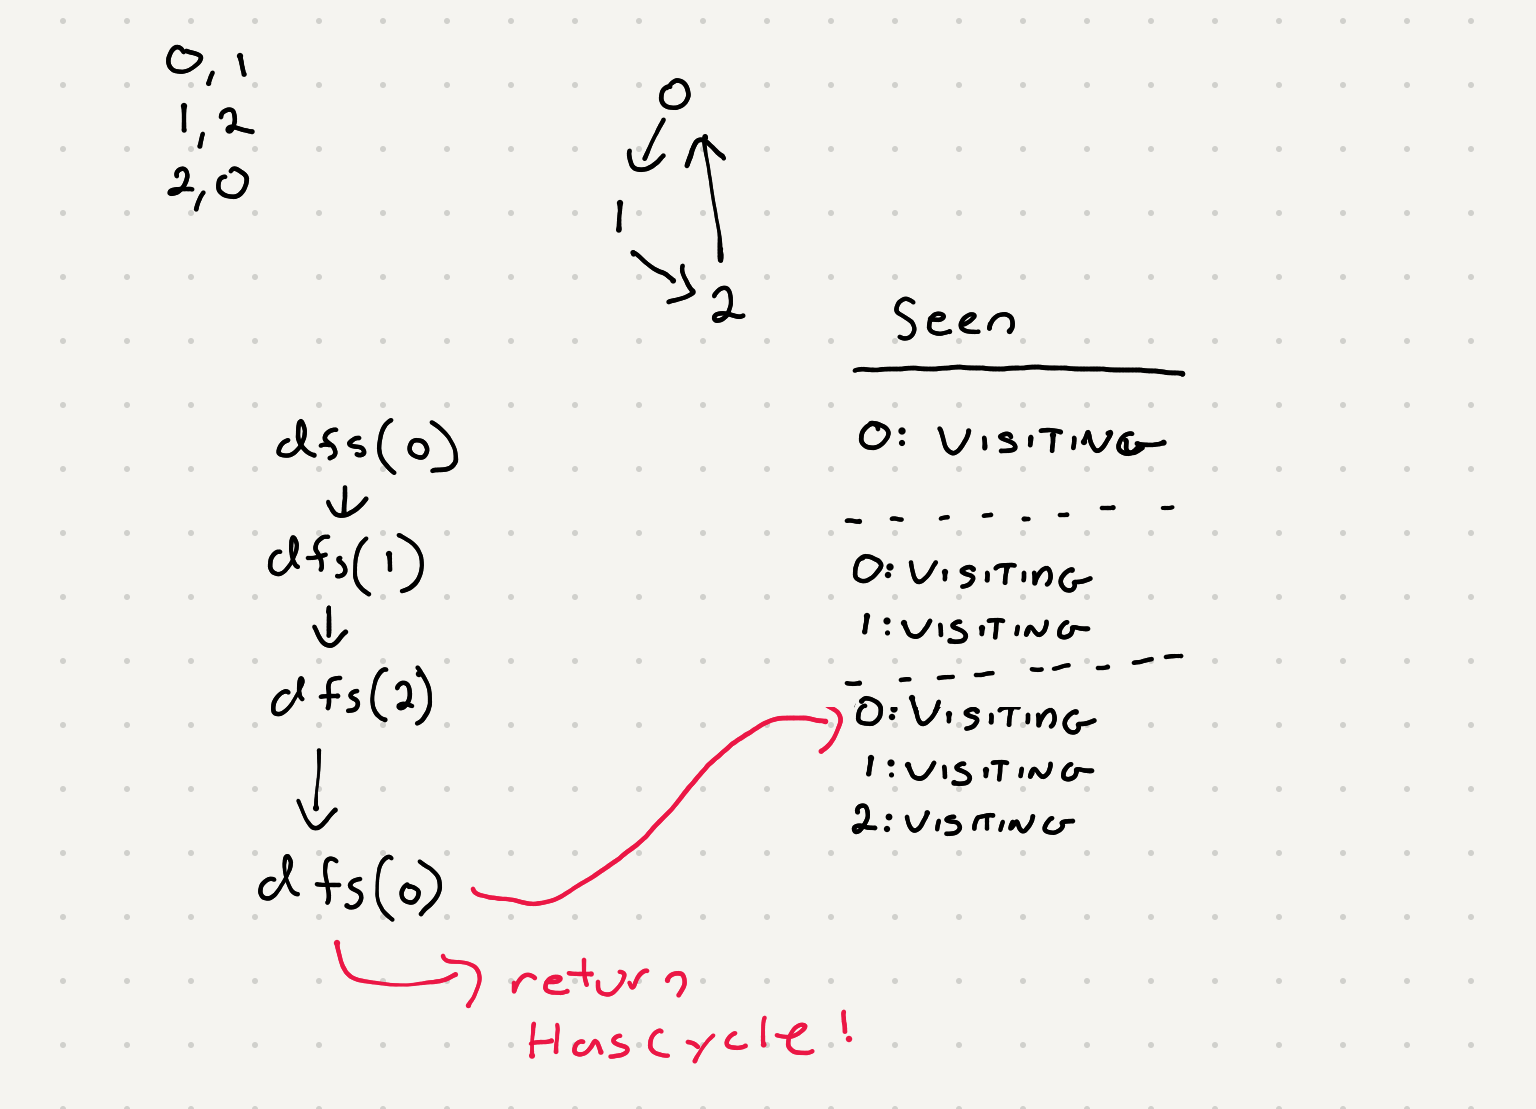 0, 1
1, 2
2, 0
0
1
2
Seen
0: VISITING
0: VISITING
1: VISITING
0: VISITING
1: VISITING
2: VISITING
dfs(0)
dfs(1)
dfs(2)
dfs(0)
return
HasCycle!